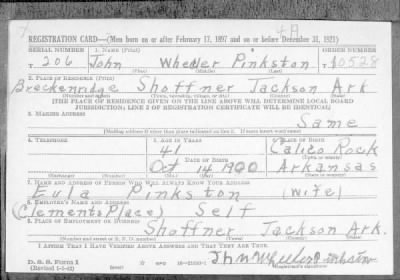 4A
REGISTRATION CARD—(Men born on or after February 17, 1897 and on or before December 31, 1921)
SERIAL NUMBER 1. NAME (Print) ORDER NUMBER
T 206 John Wheeler Pinkston T 10528
(First) (Middle) (Last)
2. PLACE OF RESIDENCE (Print)
Breckenridge Shoffner Jackson Ark.
(Number and street) (Town, township, village, or city) (County) (State)
[THE PLACE OF RESIDENCE GIVEN ON THE LINE ABOVE WILL DETERMINE LOCAL BOARD
JURISDICTION; LINE 2 OF REGISTRATION CERTIFICATE WILL BE IDENTICAL]
3. MAILING ADDRESS
Same
[Mailing address if other than place indicated on line 2. If same insert word same]
4. TELEPHONE 5. AGE IN YEARS 6. PLACE OF BIRTH
41 Calico Rock
DATE OF BIRTH (Town or county)
Oct 14 1900 Arkansas
(Exchange) (Number) (Mo.) (Day) (Yr.) (State or country)
7. NAME AND ADDRESS OF PERSON WHO WILL ALWAYS KNOW YOUR ADDRESS
Eula Pinkston (wife)
8. EMPLOYER'S NAME AND ADDRESS
(Clements Place) Self
9. PLACE OF EMPLOYMENT OR BUSINESS
Shoffner Jackson Ark.
(Number and street or R. F. D. number) (Town) (County) (State)
I AFFIRM THAT I HAVE VERIFIED ABOVE ANSWERS AND THAT THEY ARE TRUE.
John Wheeler Pinkston
D. S. S. Form 1
(Revised 1-1-42) (over) 16—21630-1 (Registrant's signature)